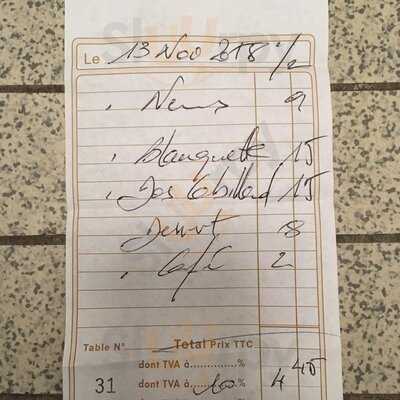 Le 13 Nov 2018
Nems 9
Blanquette 15
Dos Cabillaud 15
Dessert 8
Café 2
Table N° Total Prix TTC
dont TVA à..............%
31 dont TVA à.....10.....% 4 45
dont TVA à..............%